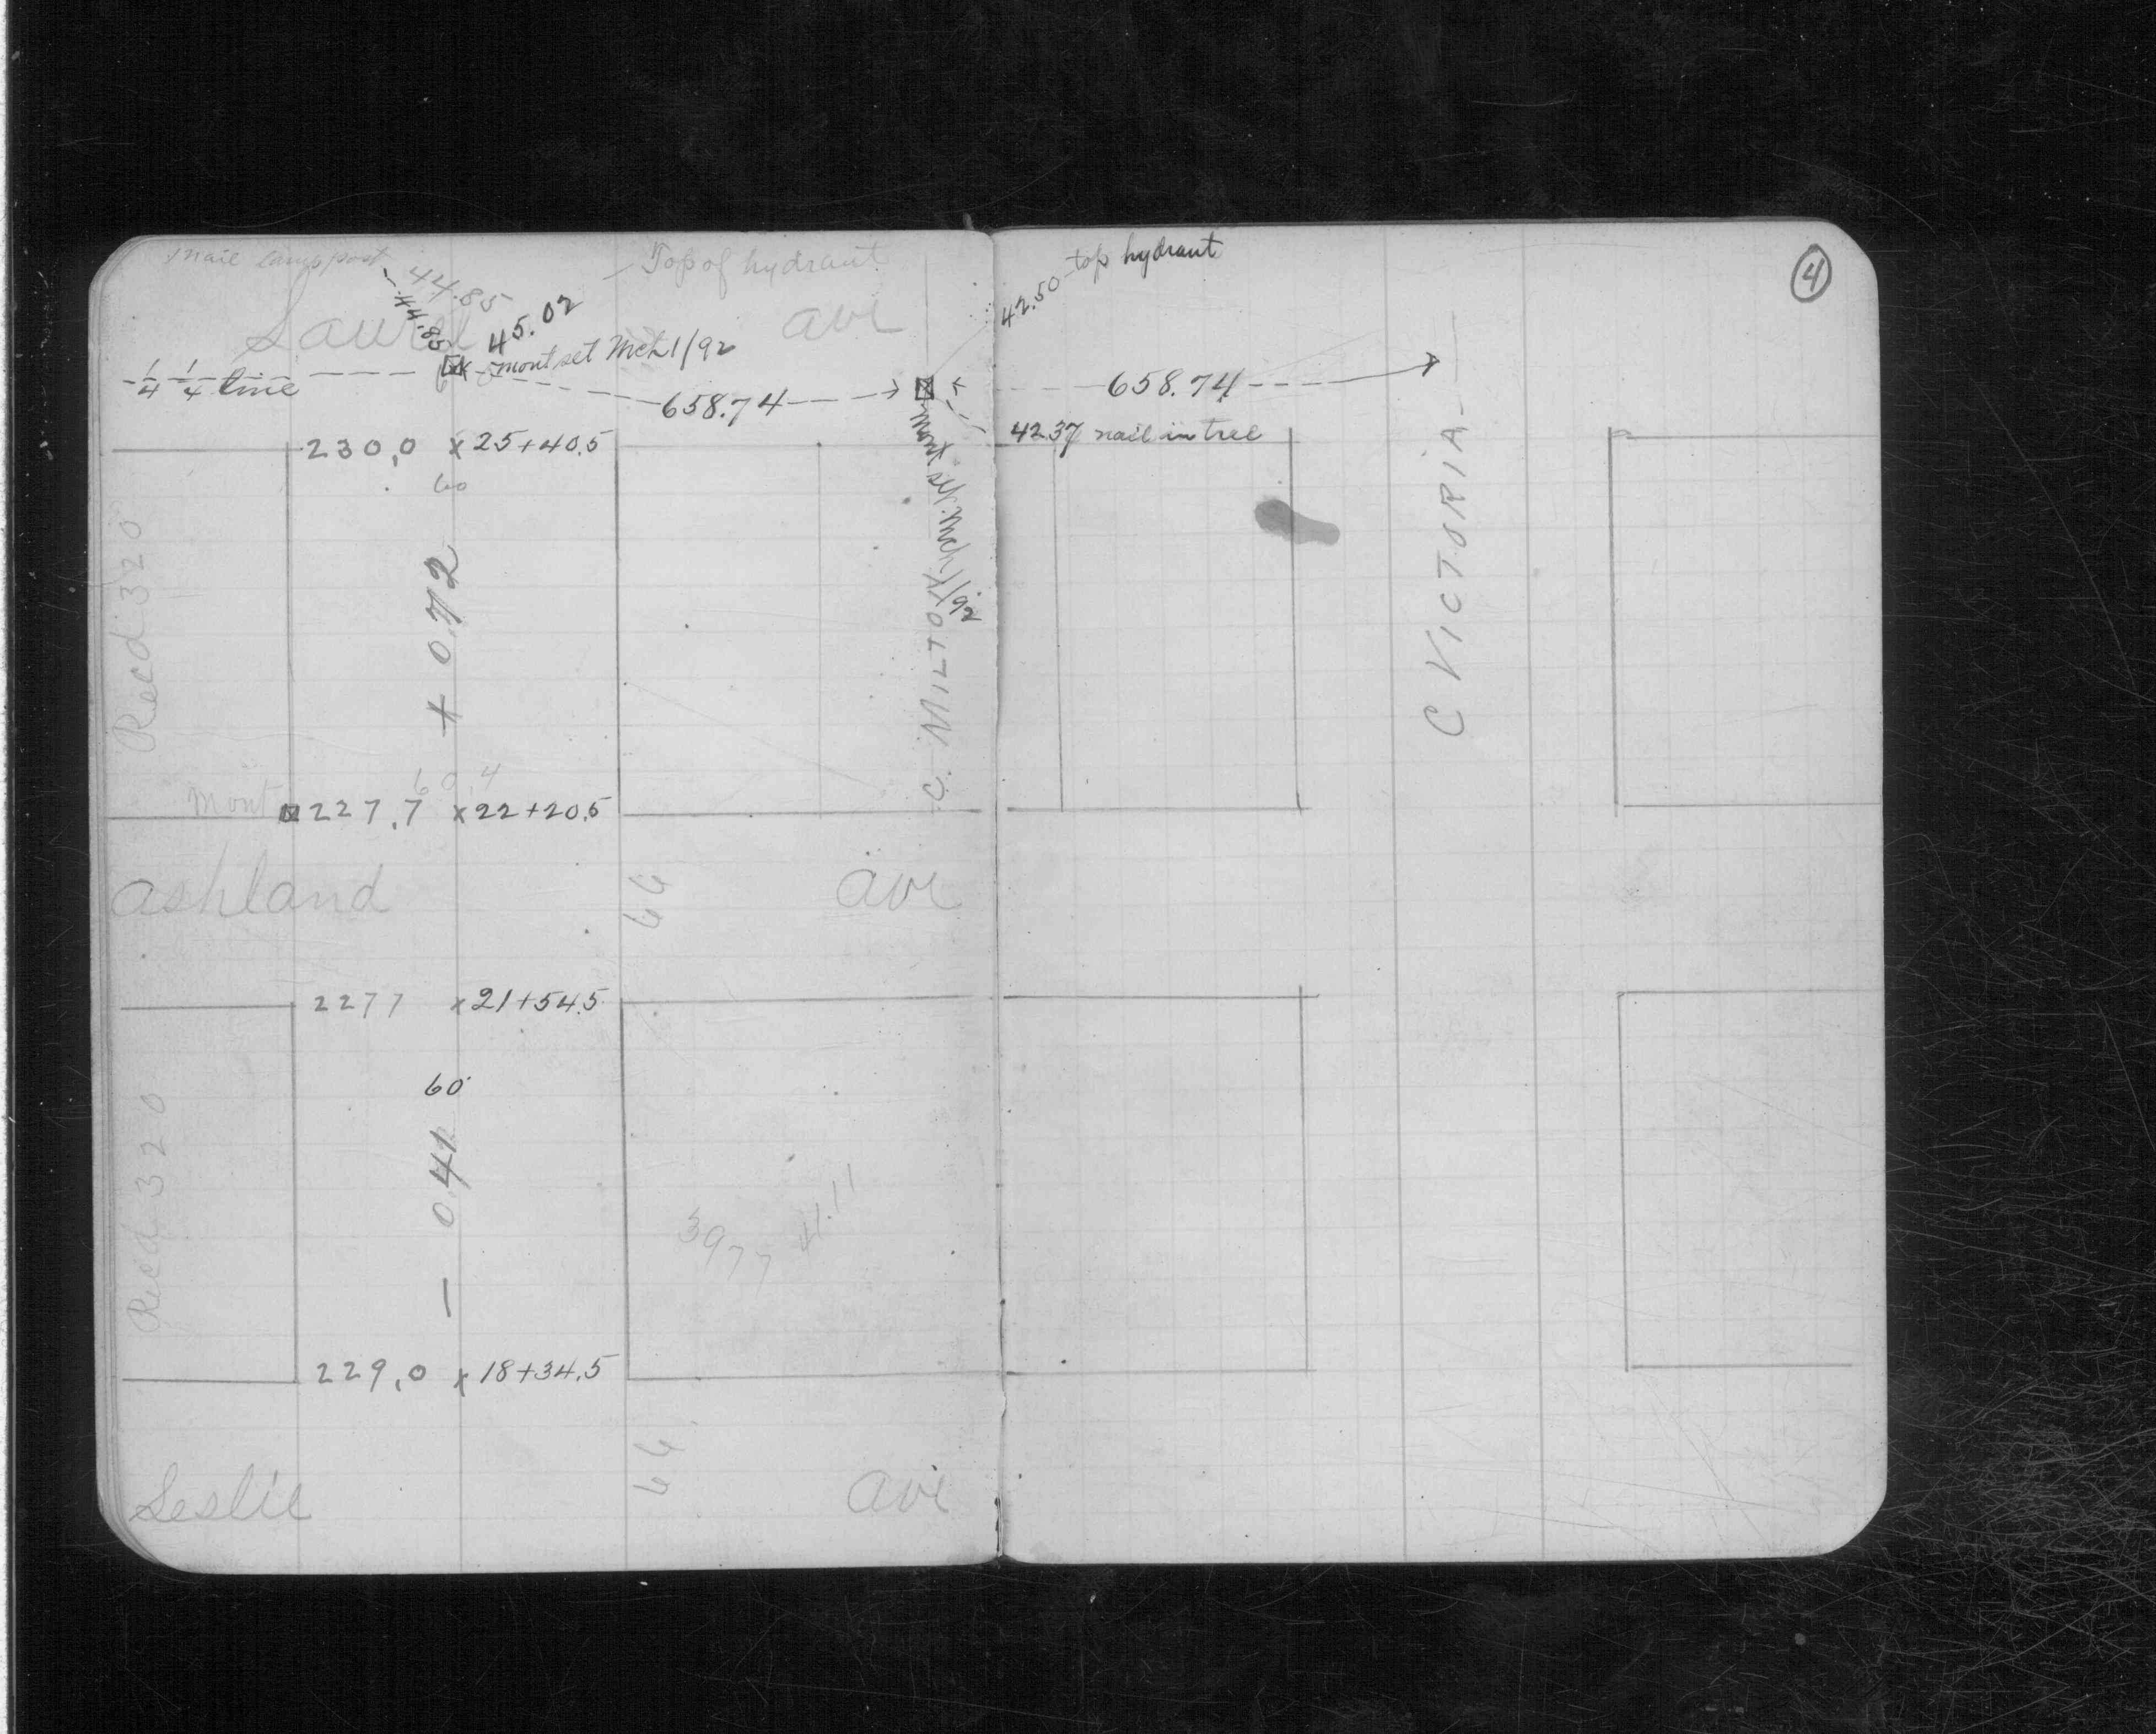 nail lamp post
Top of hydrant
44.85
44.85
45.02
Laurel ave
1/4 1/4 line
mont set Mch 1/92
658.74
230,0 x 25+40.5
60
Recd 320
+ 0.72
60.4
Mont 227.7 x 22+20.5
Ashland ave
66
2277 x 21+54.5
60
Recd 320
— 0.41
3977 41.11
229,0 x 18+34.5
66
Leslie ave
mont set Mch 1/92
C. MILTON
42.50 top hydrant
4
658.74
42.37 nail in tree
C VICTORIA